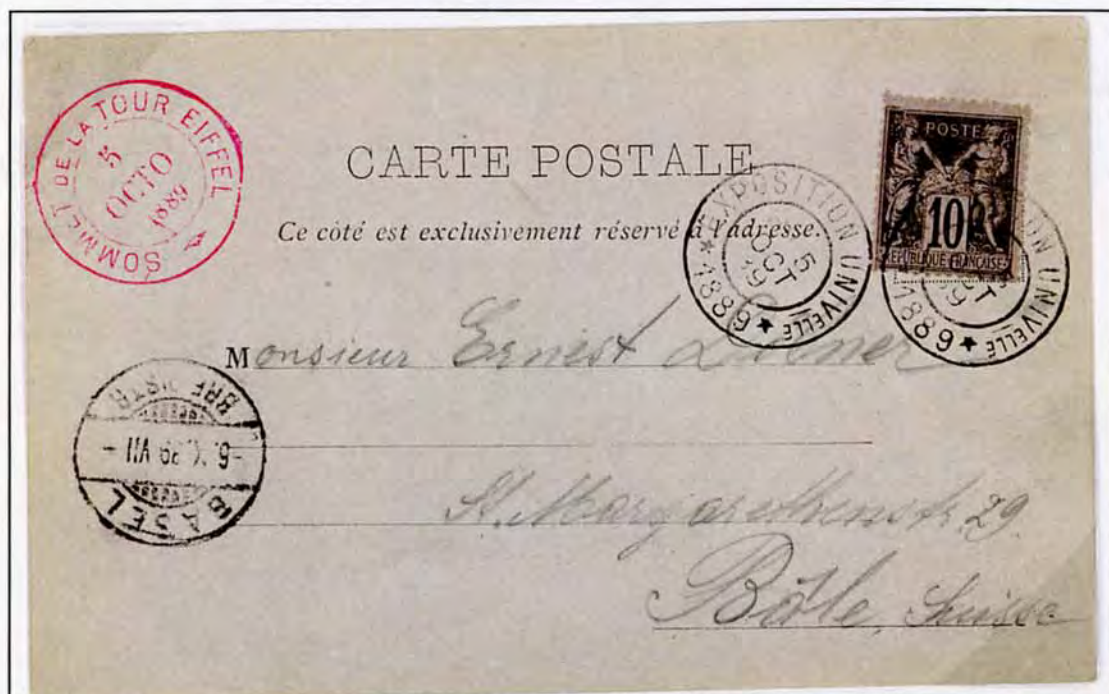 SOMMET DE LA TOUR EIFFEL
5
OCTO
1889
CARTE POSTALE
Ce côté est exclusivement réservé à l'adresse.
POSTE
10
REPUBLIQUE FRANCAISE
* EXPOSITION UNIVELLE * 1889
5
OCT
89
ION UNIVELLE * 1889
CT
89
Monsieur Ernest
BASEL
St. Margarethenstr. 29
Bâle, Suisse